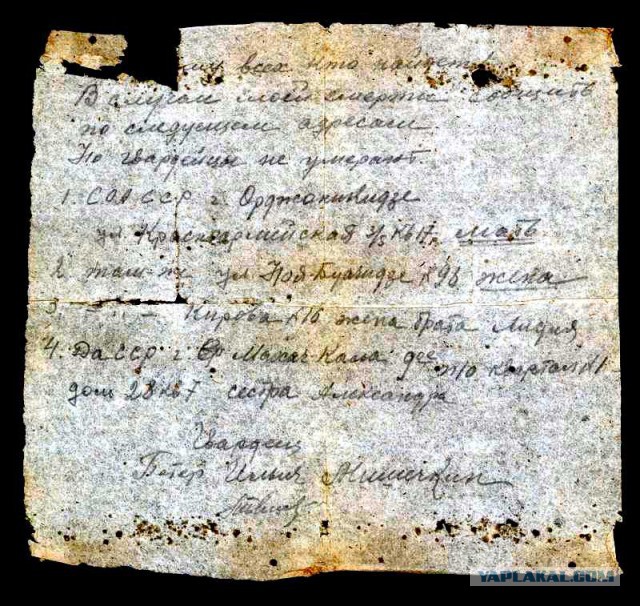 всех кто найдет
В случаи моей смерти сообщить
по следующем адресам.
Но гвардейцы не умерают.
1. СОА ССР г. Орджоникидзе
ул Красноармейская мать
2. там-же ул Ноя-Буачидзе №98 жена
3. — " — Кирова №16 жена брата Лидия
4. Да ССР г. Махач-Кала квартал №1
дом 28 кв 7 сестра Александра
Гвардеец
Илья
YAPLAKAL.COM